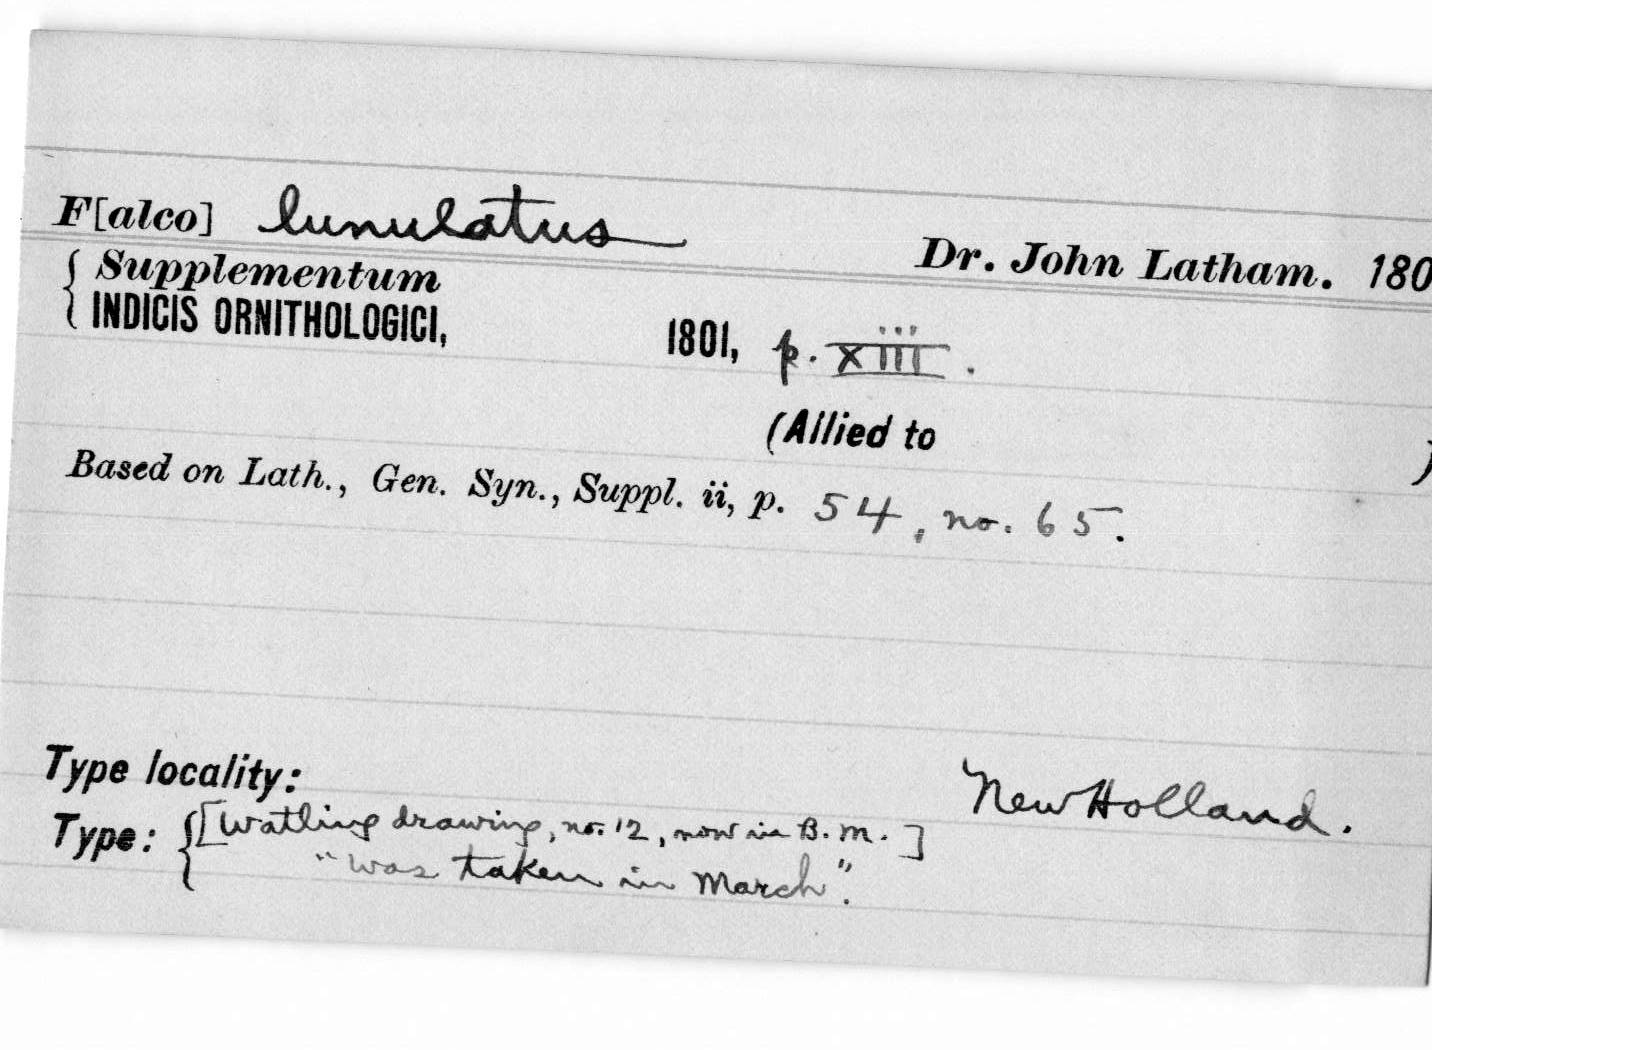 F[alco] lunulatus
Dr. John Latham. 180
{ Supplementum
INDICIS ORNITHOLOGICI, 1801, p. xiii.
(Allied to )
Based on Lath., Gen. Syn., Suppl. ii, p. 54, no. 65.
Type locality: New Holland.
Type: { [Watling drawing, no. 12, now in B. M.]
"was taken in March".